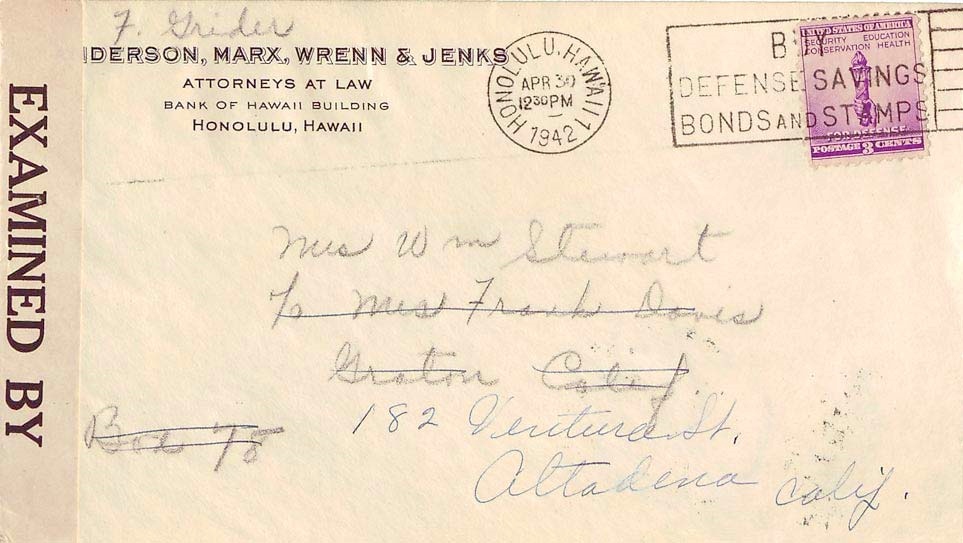 F. Grider
NDERSON, MARX, WRENN & JENKS
ATTORNEYS AT LAW
BANK OF HAWAII BUILDING
HONOLULU, HAWAII
HONOLULU, HAWAII 1
APR 30
12 30 PM
1942
BUY
DEFENSE SAVINGS
BONDS AND STAMPS
UNITED STATES OF AMERICA
SECURITY EDUCATION
CONSERVATION HEALTH
FOR DEFENSE
POSTAGE 3 CENTS
EXAMINED BY
Mrs Wm Stewart
c/o Mrs Frank Davis
Graton Calif.
Box 78
182 Ventura St.
Altadena Calif.